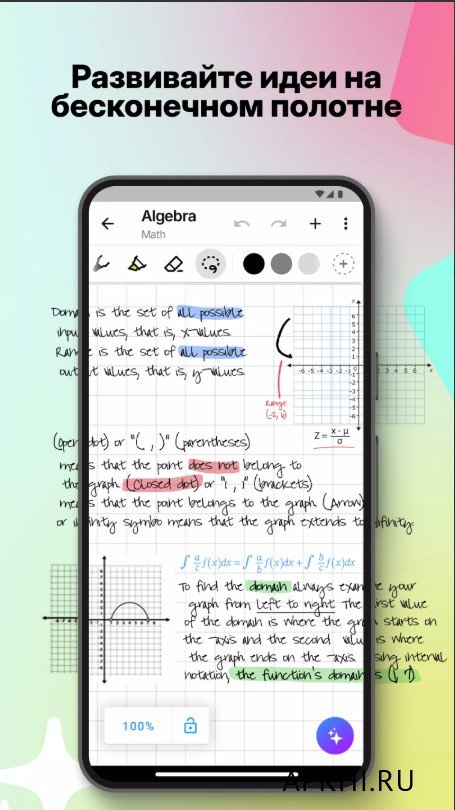 Развивайте идеи на
бесконечном полотне
Algebra
Math
Domain is the set of all possible
input values, that is, x-values
Range is the set of all possible
output values, that is, y-values
Range
Z = x-μ/σ
(Open dot) or "( , )" (parentheses)
means that the point does not belong to
the graph (Closed dot) or "[ , ]" (brackets)
means that the point belongs to the graph (Arrow)
or infinity symbol means that the graph extends to infinity
∫ a/c f(x)dx = ∫ a/b f(x)dx + ∫ b/c f(x)dx
To find the domain always examine your
graph from left to right The first value
of the domain is where the graph starts on
the -axis and the second value is where
the graph ends on the -axis. Using interval
notation, the function's domain is
100%
APKHI.RU